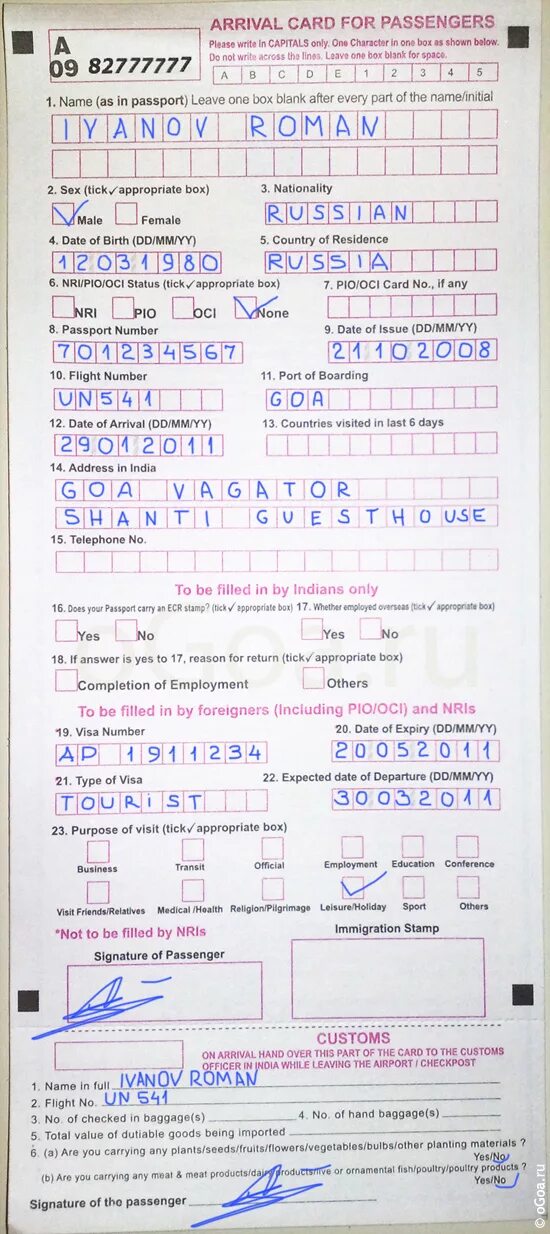 ARRIVAL CARD FOR PASSENGERS
A
09 82777777
Please write in CAPITALS only. One Character in one box as shown below.
Do not write across the lines. Leave one box blank for space.
A B C D E 1 2 3 4 5
1. Name (as in passport) Leave one box blank after every part of the name/initial
IVANOV ROMAN
2. Sex (tick✓appropriate box) 3. Nationality
Male Female RUSSIAN
4. Date of Birth (DD/MM/YY) 5. Country of Residence
12031980 RUSSIA
6. NRI/PIO/OCI Status (tick✓appropriate box) 7. PIO/OCI Card No., if any
NRI PIO OCI None
8. Passport Number 9. Date of Issue (DD/MM/YY)
701234567 21102008
10. Flight Number 11. Port of Boarding
UN541 GOA
12. Date of Arrival (DD/MM/YY) 13. Countries visited in last 6 days
29012011
14. Address in India
GOA VAGATOR
SHANTI GUESTHOUSE
15. Telephone No.
To be filled in by Indians only
16. Does your Passport carry an ECR stamp? (tick✓appropriate box) 17. Whether employed overseas (tick✓appropriate box)
Yes No Yes No
18. If answer is yes to 17, reason for return (tick✓appropriate box)
Completion of Employment Others
To be filled in by foreigners (Including PIO/OCI) and NRIs
19. Visa Number 20. Date of Expiry (DD/MM/YY)
AP 1911234 20052011
21. Type of Visa 22. Expected date of Departure (DD/MM/YY)
TOURIST 30032011
23. Purpose of visit (tick✓appropriate box)
Business Transit Official Employment Education Conference
Visit Friends/Relatives Medical /Health Religion/Pilgrimage Leisure/Holiday Sport Others
*Not to be filled by NRIs
Signature of Passenger Immigration Stamp
CUSTOMS
ON ARRIVAL HAND OVER THIS PART OF THE CARD TO THE CUSTOMS
OFFICER IN INDIA WHILE LEAVING THE AIRPORT / CHECKPOST
1. Name in full IVANOV ROMAN
2. Flight No. UN 541
3. No. of checked in baggage(s) 4. No. of hand baggage(s)
5. Total value of dutiable goods being imported
6. (a) Are you carrying any plants/seeds/fruits/flowers/vegetables/bulbs/other planting materials ?
Yes/No
(b) Are you carrying any meat & meat products/dairy products/live or ornamental fish/poultry/poultry products ?
Yes/No
Signature of the passenger
oGoa.ru
© oGoa.ru